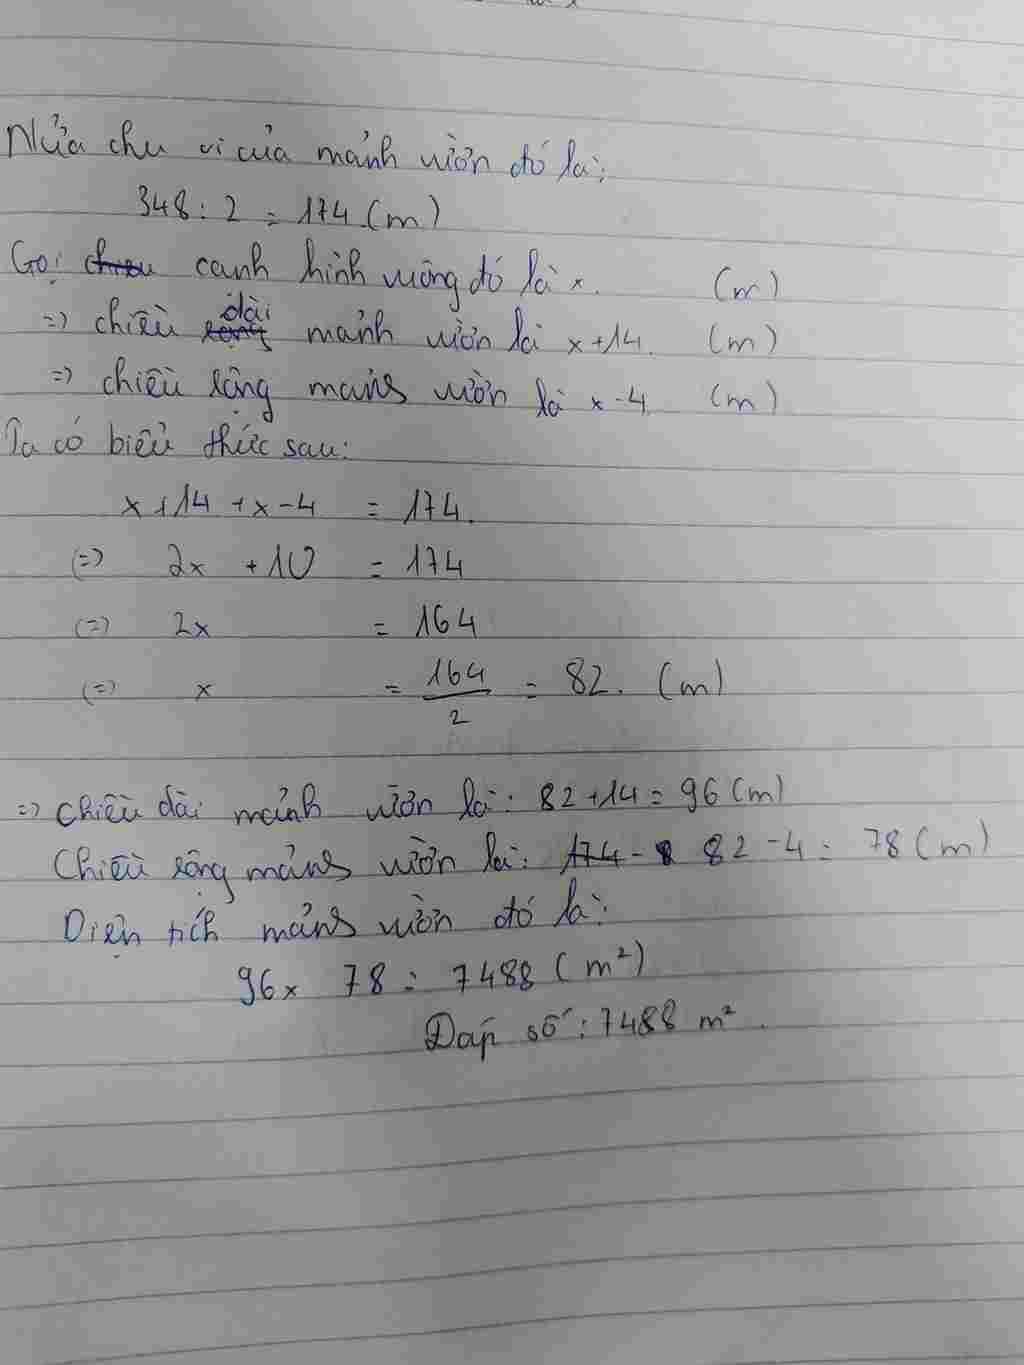 Nửa chu vi của mảnh vườn đó là:
348 : 2 = 174 (m)
Gọi cạnh hình vuông đó là x. (m)
=> chiều dài mảnh vườn là x+14. (m)
=> chiều rộng mảnh vườn là x-4 (m)
Ta có biểu thức sau:
x+14 +x-4 = 174.
(=) 2x +10 = 174
(=) 2x = 164
(=) x = 164/2 = 82. (m)
=> Chiều dài mảnh vườn là: 82+14 = 96 (m)
Chiều rộng mảnh vườn là: 82 -4 = 78 (m)
Diện tích mảnh vườn đó là:
96 x 78 = 7488 (m²)
Đáp số : 7488 m².